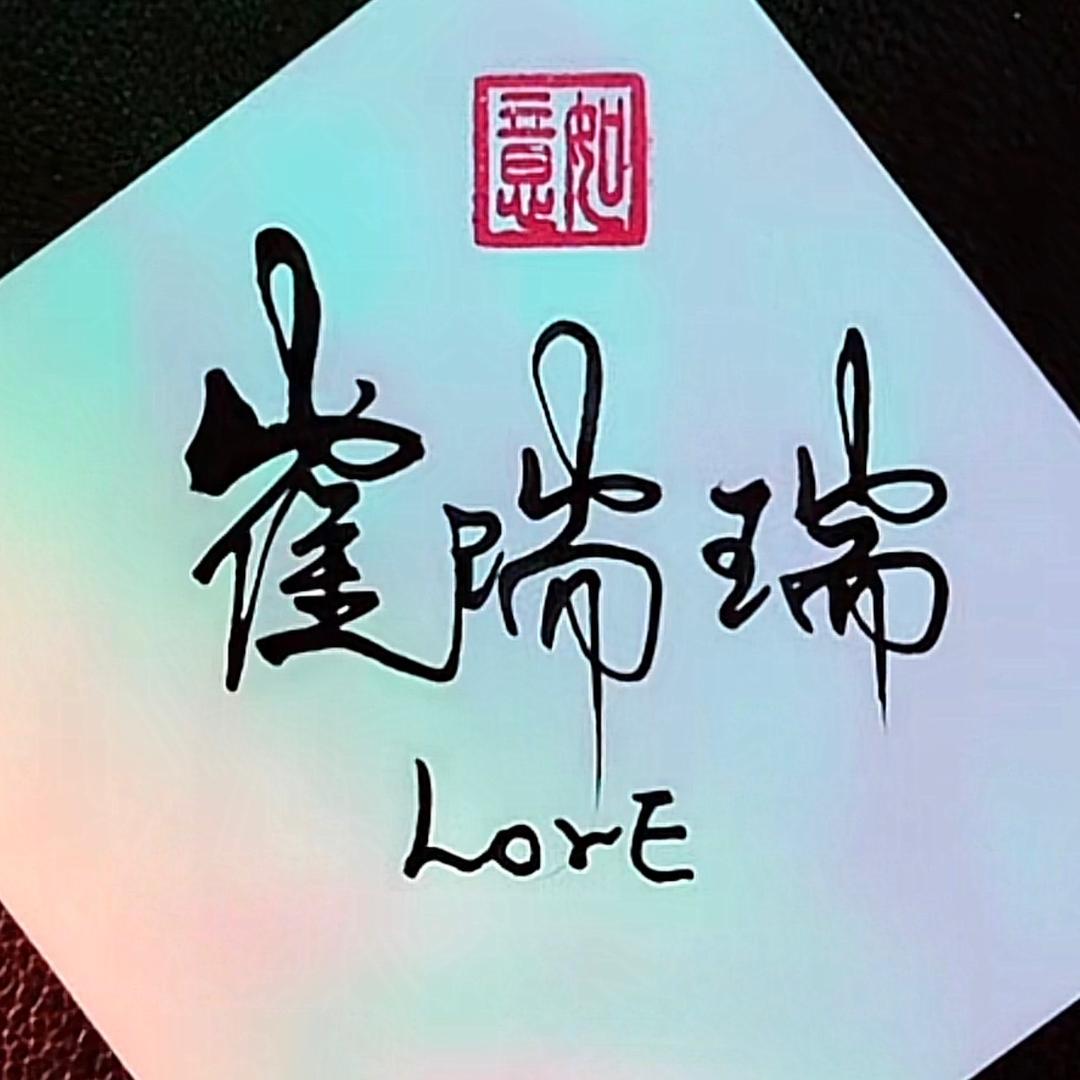 如意
崔瑞瑞
LovE